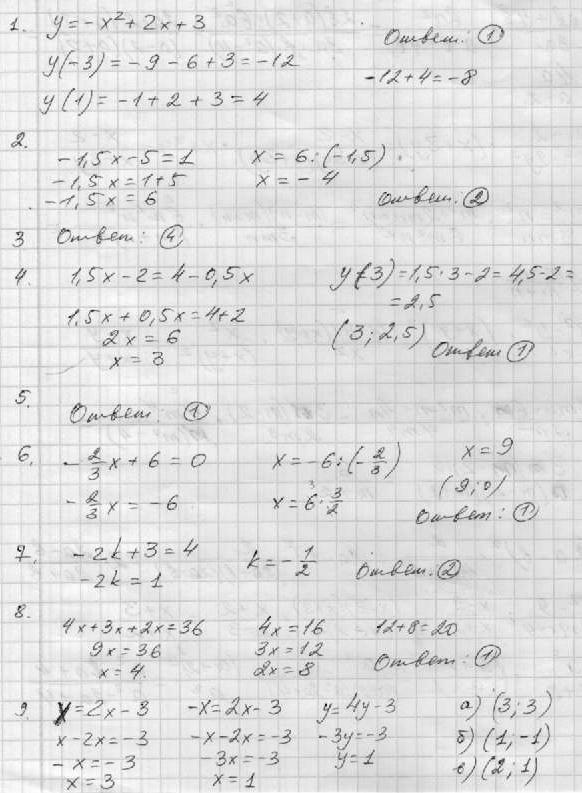 1. y = -x² + 2x + 3
Ответ: ①
y(-3) = -9 - 6 + 3 = -12
-12 + 4 = -8
y(1) = -1 + 2 + 3 = 4
2.
-1,5x - 5 = 1
x = 6 : (-1,5).
-1,5x = 1 + 5
x = -4
-1,5x = 6
Ответ. ②
3 Ответ: ④
4. 1,5x - 2 = 4 - 0,5x
y(3) = 1,5 · 3 - 2 = 4,5 - 2 =
= 2,5
1,5x + 0,5x = 4 + 2
2x = 6
(3; 2,5)
x = 3
Ответ ①
5.
Ответ. ①
6. -2/3 x + 6 = 0
x = -6 : (-2/3)
x = 9
-2/3 x = -6
x = 6 · 3/2
3
(9; 0)
Ответ: ①
7. -2k + 3 = 4
k = -1/2
-2k = 1
Ответ. ②
8.
4x + 3x + 2x = 36
4x = 16
12 + 8 = 20
9x = 36
3x = 12
x = 4.
2x = 8
Ответ: ①
9. x = 2x - 3
-x = 2x - 3
y = 4y - 3
а) (3; 3)
x - 2x = -3
-x - 2x = -3
-3y = -3
б) (1; -1)
-x = -3
-3x = -3
y = 1
в) (2; 1)
x = 3
x = 1